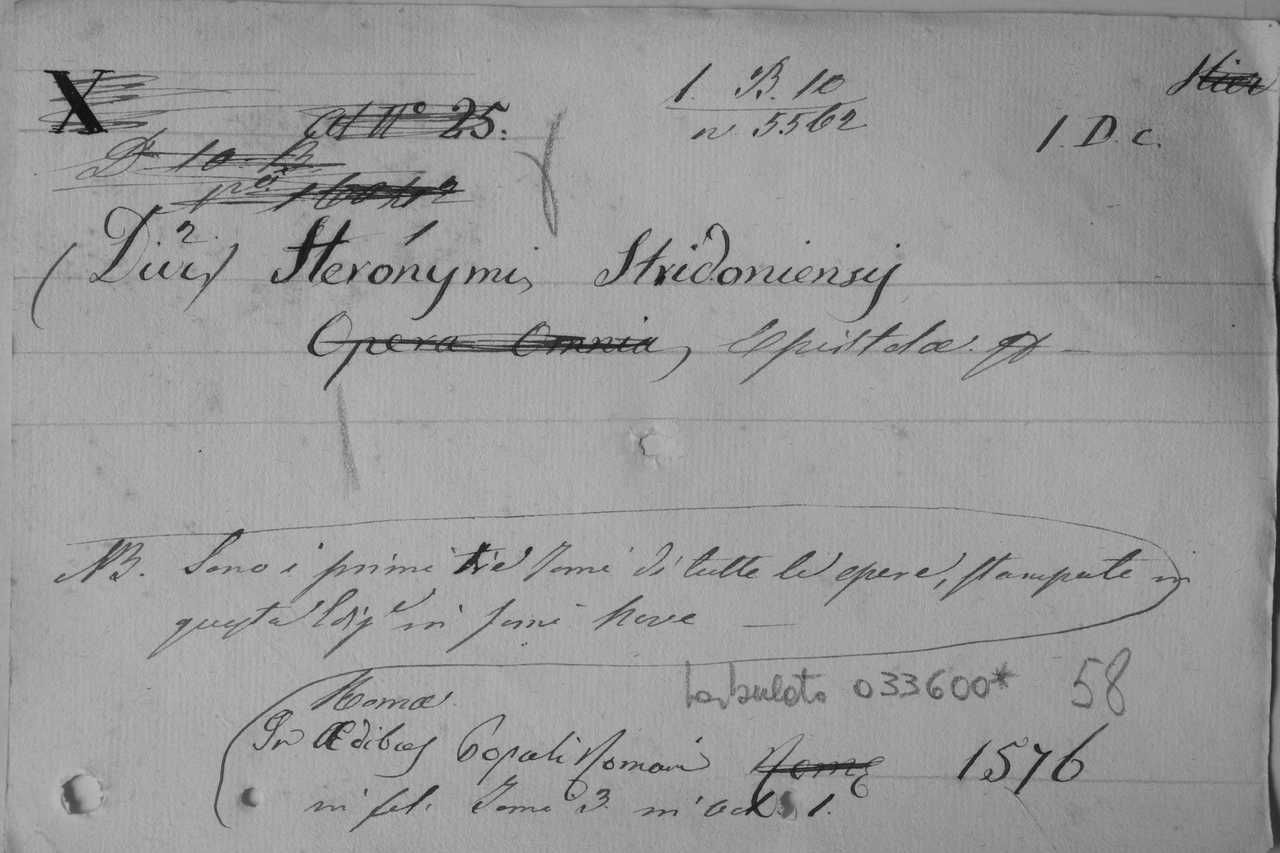 X
al Nº 25.
1. B. 10
n 5562
Hier
1. D. c.
D 10 B
(Divi) 2 Hieronymi, 1 Stridoniensis
Opera Omnia, Epistolæ. &
NB. Sono i primi tre Tomi di tutte le opere, stampate in
questa Ediz.e in Tomi Nove —
Romæ
tabulato 033600* 58
In Ædibus Populi Romani Romę 1576
in fol. Tomi 3. in Vol. 1.